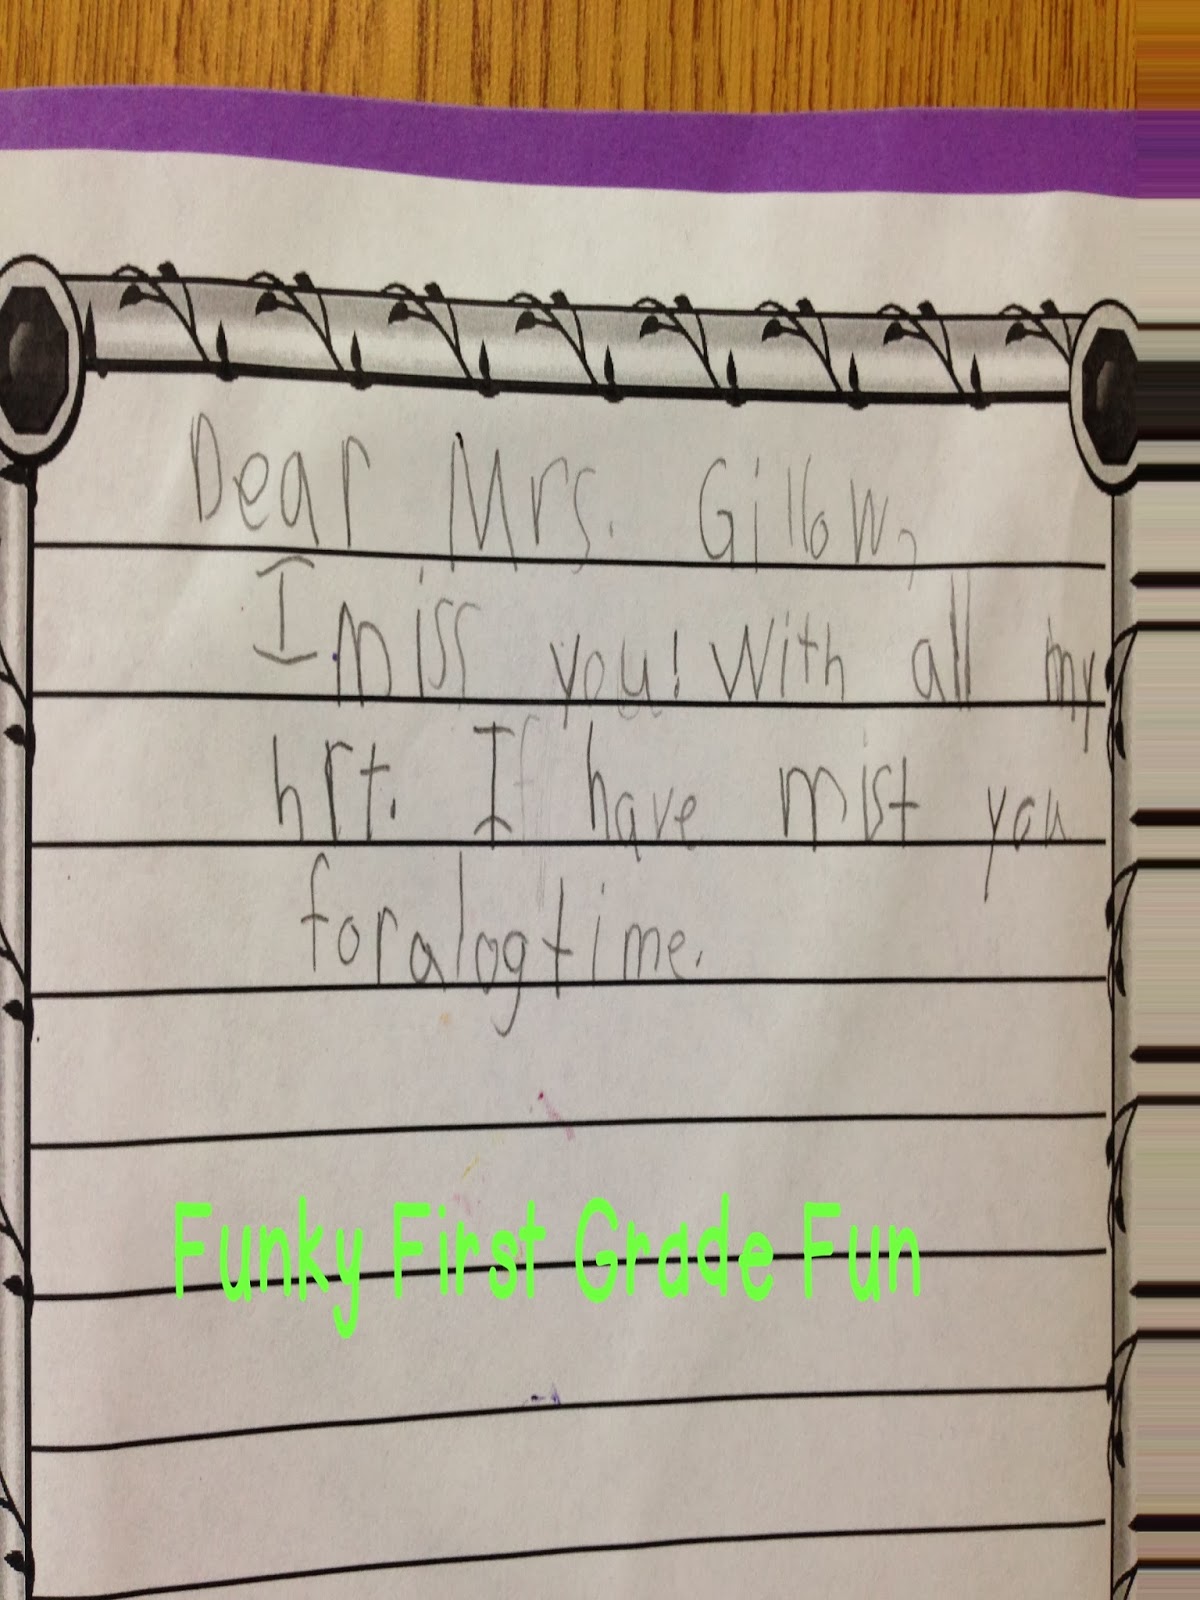 Dear Mrs. Gillow,
I miss you! With all my
hrt. I have mist you
foralogtime.
Funky First Grade Fun